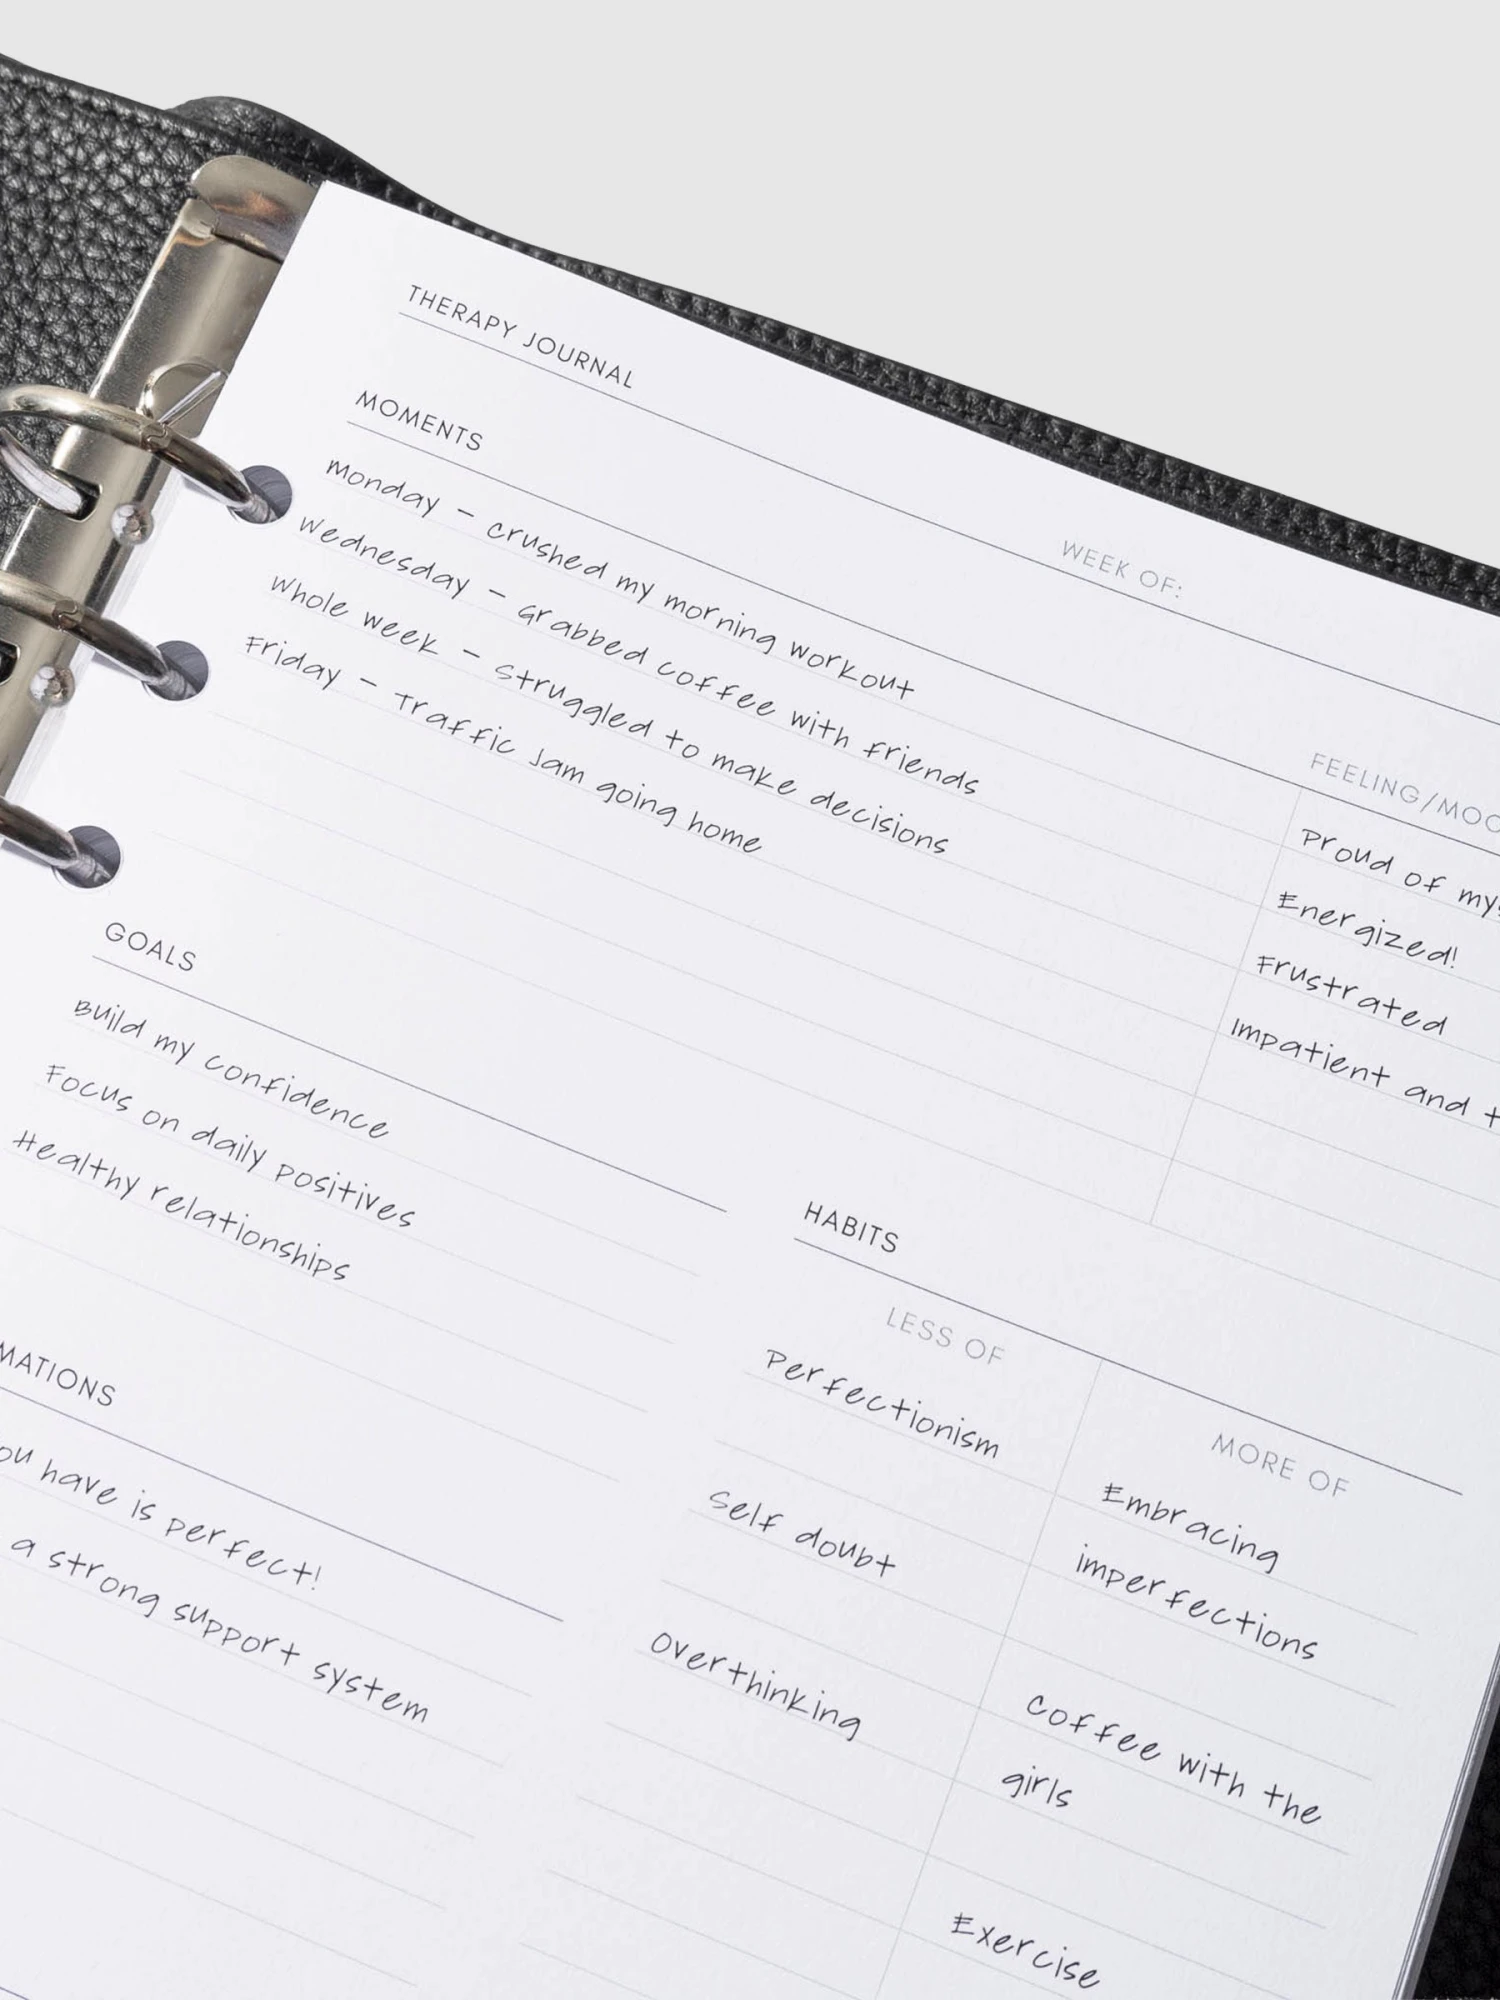 THERAPY JOURNAL
WEEK OF:
MOMENTS
FEELING/
Monday - crushed my morning workout
Proud of
Wednesday - Grabbed coffee with friends
Energized!
Whole week - Struggled to make decisions
Frustrated
Friday - Traffic Jam going home
Impatient and
GOALS
Build my confidence
Focus on daily positives
Healthy relationships
HABITS
LESS OF
MORE OF
Perfectionism
Embracing
imperfections
Self doubt
Coffee with the
girls
Overthinking
Exercise
MATIONS
have is perfect!
a strong support system